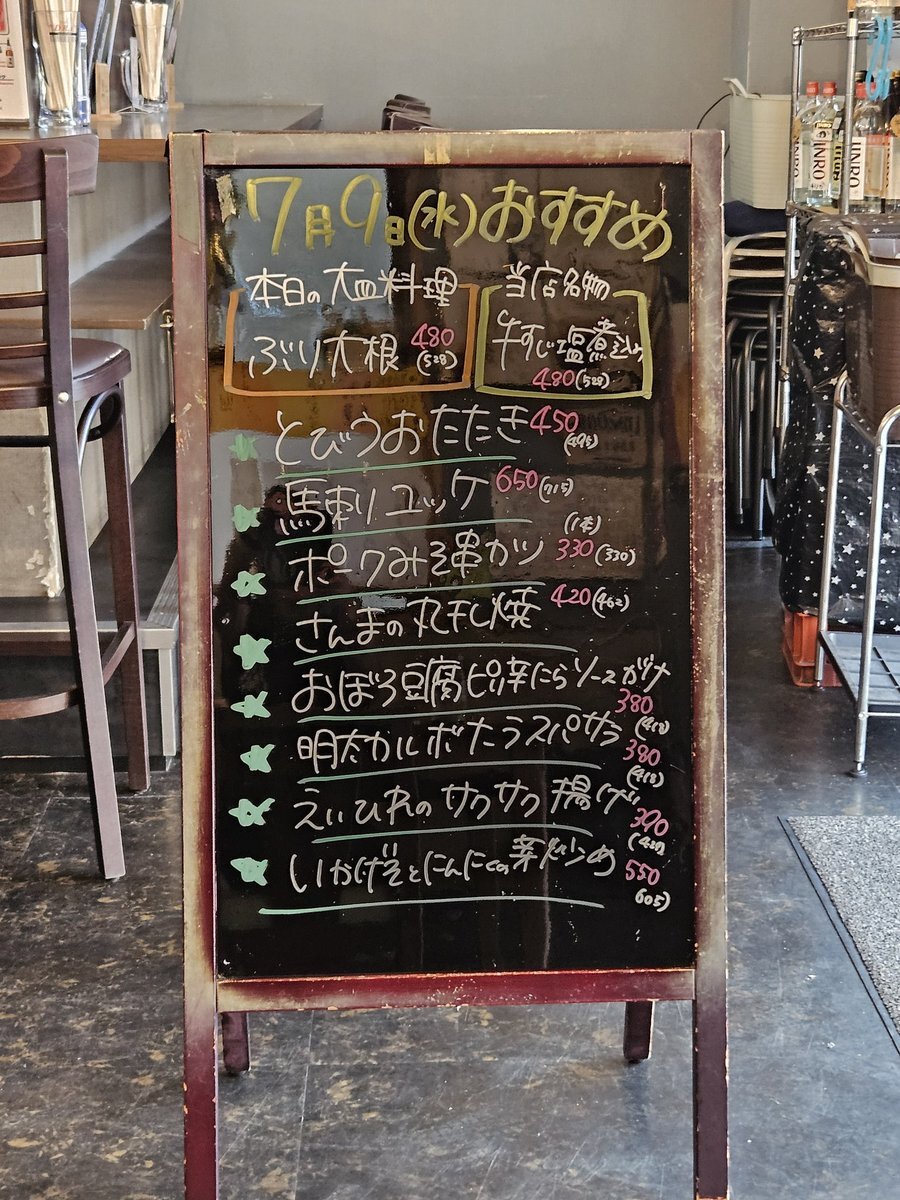 7月9日(水)おすすめ
本日の大皿料理
ぶり大根 480
(528)
当店名物
牛すじ塩煮込み
480(528)
とびうおたたき 450
(495)
馬刺しユッケ 650(715)
ポークみそ串カツ (1本)
330(330)
さんまの丸干し焼 420(462)
おぼろ豆腐ピリ辛にらソースがけ
380
(418)
明太カルボナーラスパサラ 380
(418)
えいひれのサクサク揚げ 390
(429)
いかげそとにんにくの芽炒め 550
(605)
JINRO
JINRO